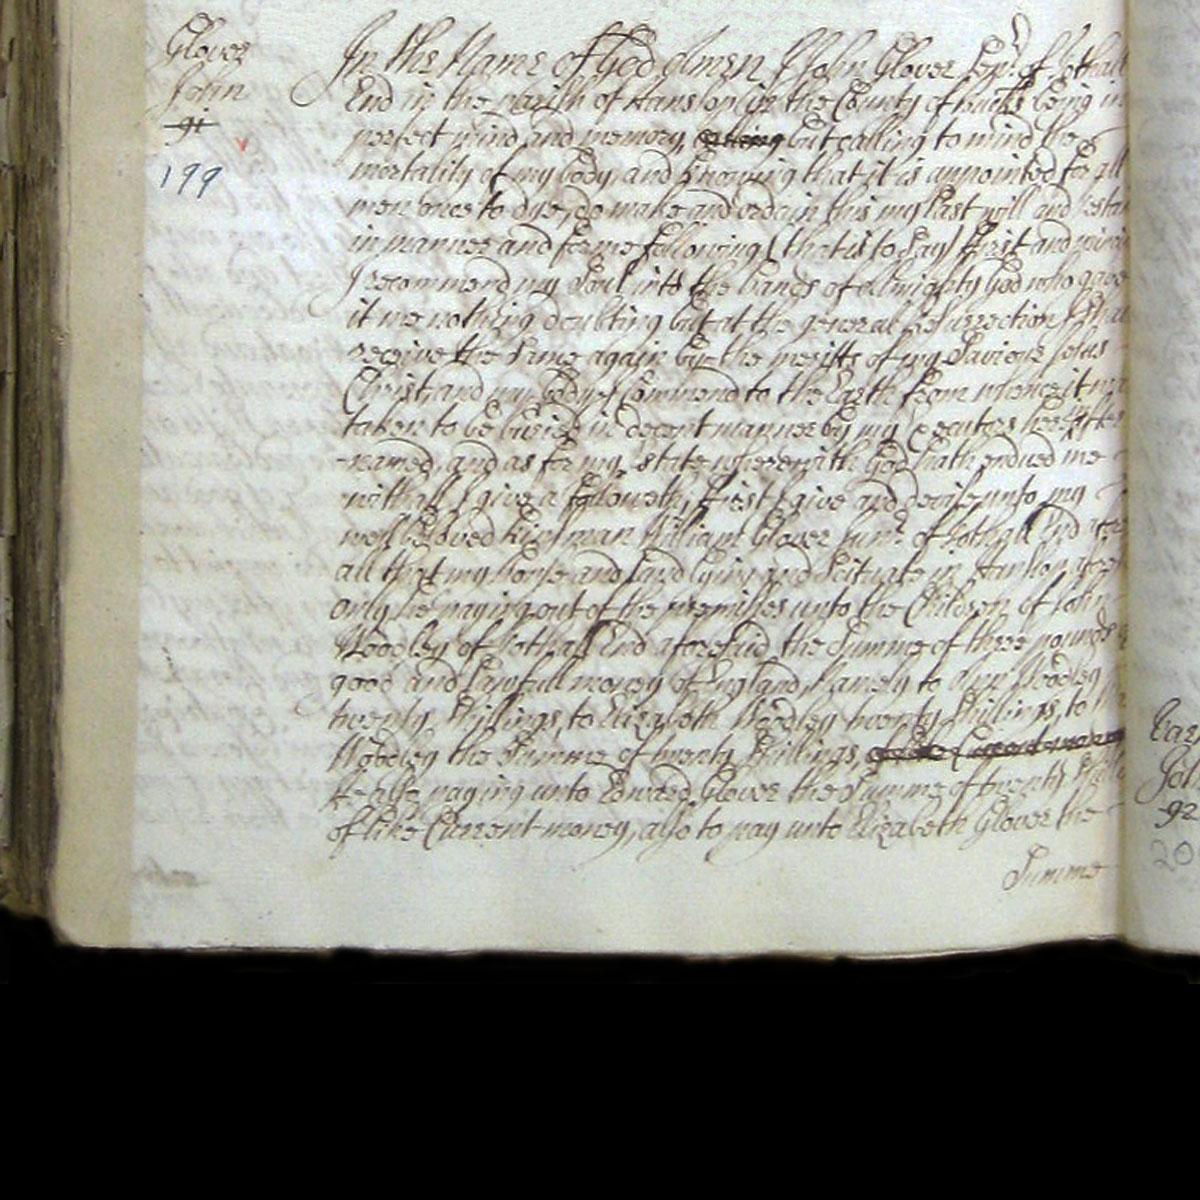 Glover
John
91
199
In the Name of God Amen I John Glover Senr. of Hothall
End in the parish of Hanslop in the County of Bucks being in
perfect mind and memory, but calling to mind the
mortality of my body, and knowing that it is appointed for all
men once to dye, do make and ordain this my last will and testa
in manner and forme following (that is to say) First and
I recommend my Soul into the hands of Almighty God who gave
it me nothing doubting but at the general Resurrection I shall
receive the same again by the meritts of my Saviour Jesus
Christ, and my body I Commend to the Earth from whence it wa
taken to be buried in decent manner by my Executors hereafter
named, and as for my state wherewith God hath endued me
withall I give a followeth, First I give and devise unto my
well beloved kinsman William Glover Junr. of Hothall End
all that my house and Land lying and Scituate in Hanslop
only he paying out of the premisses unto the Children of John
Woodley of Hothall End aforesaid the Summe of three pounds
good and Lawfull money of England, Namely to Ann Woodley
twenty Shillings, to Elizabeth Woodley twenty Shillings, to
Woodley the Summe of twenty Shillings,
He also paying unto Edward Glover the Summe of twenty Shill
of like Current money, also to pay unto Elizabeth Glover the
Summe
Joh
92
20